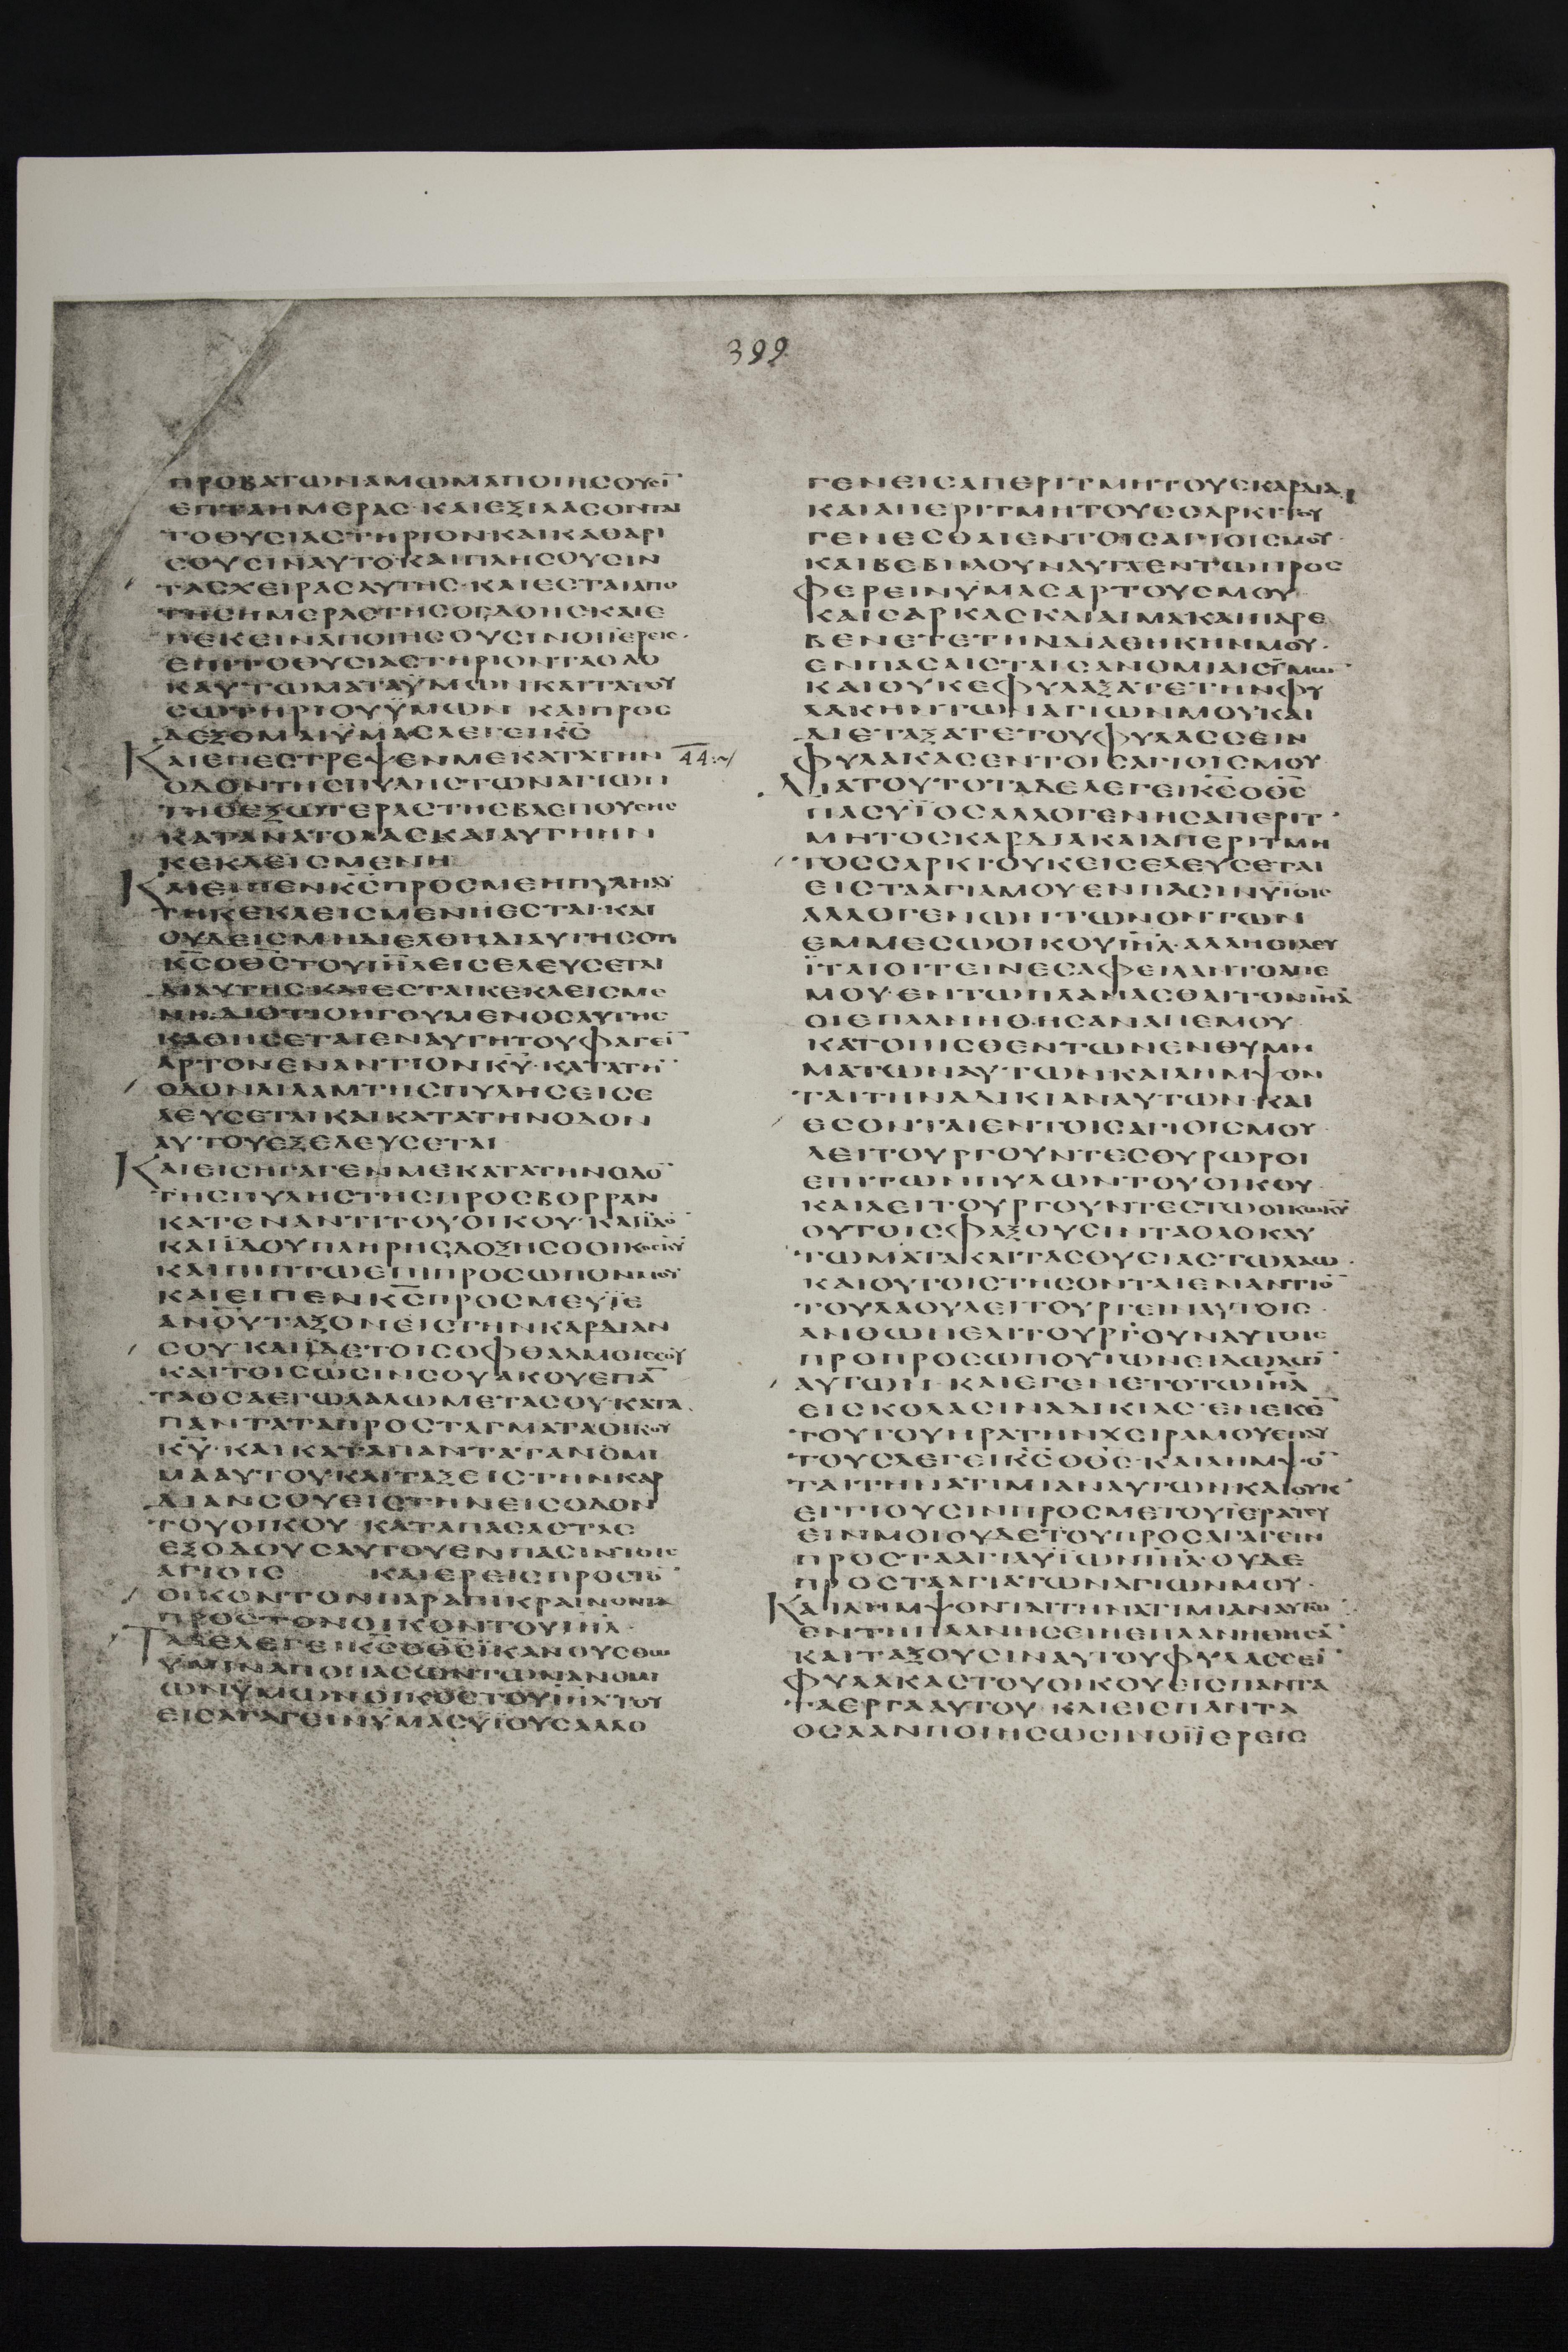 399
ΠΡΟΒΑΤΩΝΑΜΩΜΑΠΟΙΗΣΟΥΣΙ̅
ΕΠΤΑΗΜΕΡΑΣ·ΚΑΙΕΞΙΛΑΣΟΝΤΑΙ
ΤΟΘΥΣΙΑΣΤΗΡΙΟΝΚΑΙΚΑΘΑΡΙ
ΣΟΥΣΙΝΑΥΤΟ·ΚΑΙΠΛΗΣΟΥΣΙΝ
ΤΑΣΧΕΙΡΑΣΑΥΤΗΣ·ΚΑΙΕΣΤΑΙΑΠΟ
ΤΗΣΗΜΕΡΑΣΤΗΣΟΓΔΟΗΣΚΑΙΕ
ΠΕΚΕΙΝΑΠΟΙΗΣΟΥΣΙΝΟΙΪΕΡΕΙΣ·
ΕΠΙΤΟΘΥΣΙΑΣΤΗΡΙΟΝΤΑΟΛΟ
ΚΑΥΤΩΜΑΤΑΫΜΩΝΚΑΙΤΑΤΟΥ
ΣΩΤΗΡΙΟΥΫΜΩΝ ΚΑΙΠΡΟΣ
ΔΕΞΟΜΑΙΫΜΑΣΛΕΓΕΙΚ̅Σ̅
ΚΑΙΕΠΕΣΤΡΕΨΕΝΜΕΚΑΤΑΤΗΝ 44:~/
ΟΔΟΝΤΗΣΠΥΛΗΣΤΩΝΑΓΙΩΝ
ΤΗΣΕΞΩΤΕΡΑΣΤΗΣΒΛΕΠΟΥΣΗΣ
ΚΑΤΑΝΑΤΟΛΑΣΚΑΙΑΥΤΗΗΝ
ΚΕΚΛΕΙΣΜΕΝΗ
ΚΑΙΕΙΠΕΝΚ̅Σ̅ΠΡΟΣΜΕΗΠΥΛΗΑΥ
ΤΗΚΕΚΛΕΙΣΜΕΝΗΕΣΤΑΙ·ΚΑΙ
ΟΥΔΕΙΣΜΗΔΙΕΛΘΗΔΙΑΥΤΗΣΟΤΙ
Κ̅Σ̅ΟΘ̅Σ̅ΤΟΥΙ̅Η̅Λ̅ΕΙΣΕΛΕΥΣΕΤΑΙ
ΔΙΑΥΤΗΣ·ΚΑΙΕΣΤΑΙΚΕΚΛΕΙΣΜΕ
ΝΗ·ΔΙΟΤΙΟΗΓΟΥΜΕΝΟΣΑΥΤΗΣ
ΚΑΘΗΣΕΤΑΙΕΝΑΥΤΗΤΟΥΦΑΓΕΙ̅
ΑΡΤΟΝΕΝΑΝΤΙΟΝΚ̅Υ̅·ΚΑΤΑΤΗ̅
ΟΔΟΝΑΙΛΑΜΤΗΣΠΥΛΗΣΕΙΣΕ
ΛΕΥΣΕΤΑΙΚΑΙΚΑΤΑΤΗΝΟΔΟΝ
ΑΥΤΟΥΕΞΕΛΕΥΣΕΤΑΙ
ΚΑΙΕΙΣΗΓΑΓΕΝΜΕΚΑΤΑΤΗΝΟΔΟ̅
ΤΗΣΠΥΛΗΣΤΗΣΠΡΟΣΒΟΡΡΑΝ
ΚΑΤΕΝΑΝΤΙΤΟΥΟΙΚΟΥ·ΚΑΙΪΔΟ̅
ΚΑΙΪΔΟΥΠΛΗΡΗΣΔΟΞΗΣΟΟΙΚΟΣΚ̅Υ̅
ΚΑΙΠΙΠΤΩΕΠΙΠΡΟΣΩΠΟΝΜΟΥ
ΚΑΙΕΙΠΕΝΚ̅Σ̅ΠΡΟΣΜΕΥΪΕ
ΑΝ̅Ο̅Υ̅ΤΑΞΟΝΕΙΣΤΗΝΚΑΡΔΙΑΝ
ΣΟΥ·ΚΑΙΪΔΕΤΟΙΣΟΦΘΑΛΜΟΙΣΣΟΥ
ΚΑΙΤΟΙΣΩΣΙΝΣΟΥΑΚΟΥΕΠΑ̅
ΤΑΟΣΑΕΓΩΛΑΛΩΜΕΤΑΣΟΥ·ΚΑΤΑ
ΠΑΝΤΑΤΑΠΡΟΣΤΑΓΜΑΤΑΟΙΚΟΥ
Κ̅Υ̅·ΚΑΙΚΑΤΑΠΑΝΤΑΤΑΝΟΜΙ
ΜΑΑΥΤΟΥΚΑΙΤΑΞΕΙΣΤΗΝΚΑΡ
ΔΙΑΝΣΟΥΕΙΣΤΗΝΕΙΣΟΔΟΝ
ΤΟΥΟΙΚΟΥ ΚΑΤΑΠΑΣΑΣΤΑΣ
ΕΞΟΔΟΥΣΑΥΤΟΥΕΝΠΑΣΙΝΤΟΙΣ
ΑΓΙΟΙΣ ΚΑΙΕΡΕΙΣΠΡΟΣΤΟ̅
ΟΙΚΟΝΤΟΝΠΑΡΑΠΙΚΡΑΙΝΟΝΤΑ
ΠΡΟΣΤΟΝΟΙΚΟΝΤΟΥΙ̅Η̅Λ̅·
ΤΑΔΕΛΕΓΕΙΚ̅Σ̅ΟΘ̅Σ̅ΪΚΑΝΟΥΣΘΩ
ΥΜΙΝΑΠΟΠΑΣΩΝΤΩΝΑΝΟΜΙ
ΩΝΥΜΩΝΟΙΚΟΣΤΟΥΙ̅Η̅Λ̅ΤΟΥ
ΕΙΣΑΓΑΓΕΙΝΥΜΑΣΥΪΟΥΣΑΛΛΟ
ΓΕΝΕΙΣΑΠΕΡΙΤΜΗΤΟΥΣΚΑΡΔΙΑ
ΚΑΙΑΠΕΡΙΤΜΗΤΟΥΣΣΑΡΚΙΤΟΥ
ΓΕΝΕΣΘΑΙΕΝΤΟΙΣΑΓΙΟΙΣΜΟΥ·
ΚΑΙΒΕΒΗΛΟΥΝΑΥΤΑΕΝΤΩΠΡΟΣ
ΦΕΡΕΙΝΥΜΑΣΑΡΤΟΥΣΜΟΥ
ΚΑΙΣΑΡΚΑΣΚΑΙΑΙΜΑ·ΚΑΙΠΑΡΕ
ΒΕΝΕΤΕΤΗΝΔΙΑΘΗΚΗΝΜΟΥ·
ΕΝΠΑΣΑΙΣΤΑΙΣΑΝΟΜΙΑΙΣΫΜΩ̅
ΚΑΙΟΥΚΕΦΥΛΑΞΑΤΕΤΗΝΦΥ
ΛΑΚΗΝΤΩΝΑΓΙΩΝΜΟΥ·ΚΑΙ
ΔΙΕΤΑΞΑΤΕΤΟΥΦΥΛΑΣΣΕΙΝ
ΦΥΛΑΚΑΣΕΝΤΟΙΣΑΓΙΟΙΣΜΟΥ
ΔΙΑΤΟΥΤΟΤΑΔΕΛΕΓΕΙΚ̅Σ̅ΟΘ̅Σ̅
ΠΑΣΥΪΟΣΑΛΛΟΓΕΝΗΣΑΠΕΡΙΤ
ΜΗΤΟΣΚΑΡΔΙΑΚΑΙΑΠΕΡΙΤΜΗ
ΤΟΣΣΑΡΚΙΟΥΚΕΙΣΕΛΕΥΣΕΤΑΙ
ΕΙΣΤΑΑΓΙΑΜΟΥΕΝΠΑΣΙΝΥΪΟΙΣ
ΑΛΛΟΓΕΝΩΝΤΩΝΟΝΤΩΝ
ΕΜΜΕΣΩΟΙΚΟΥΙ̅Η̅Λ̅·ΑΛΛΗΟΙΛΕΥ
ΪΤΑΙΟΙΤΕΙΝΕΣΑΦΕΙΛΑΝΤΟΑΠΕ
ΜΟΥ·ΕΝΤΩΠΛΑΝΑΣΘΑΙΤΟΝΙ̅Η̅Λ̅
ΟΙΕΠΛΑΝΗΘΗΣΑΝΑΠΕΜΟΥ
ΚΑΤΟΠΙΣΘΕΝΤΩΝΕΝΘΥΜΗ
ΜΑΤΩΝΑΥΤΩΝ·ΚΑΙΛΗΜΨΟΝ
ΤΑΙΤΗΝΑΔΙΚΙΑΝΑΥΤΩΝ·ΚΑΙ
ΕΣΟΝΤΑΙΕΝΤΟΙΣΑΓΙΟΙΣΜΟΥ·
ΛΕΙΤΟΥΡΓΟΥΝΤΕΣΘΥΡΩΡΟΙ
ΕΠΙΤΩΝΠΥΛΩΝΤΟΥΟΙΚΟΥ·
ΚΑΙΛΕΙΤΟΥΡΓΟΥΝΤΕΣΤΩΟΙΚΩΚ̅Υ̅
ΟΥΤΟΙΣΦΑΞΟΥΣΙΝΤΑΟΛΟΚΑΥ
ΤΩΜΑΤΑΚΑΙΤΑΣΘΥΣΙΑΣΤΩΛΑΩ·
ΚΑΙΟΥΤΟΙΣΤΗΣΟΝΤΑΙΕΝΑΝΤΙΟ̅
ΤΟΥΛΑΟΥΛΕΙΤΟΥΡΓΕΙΝΑΥΤΟΙΣ·
ΑΝΘΩΝΕΛΙΤΟΥΡΓΟΥΝΑΥΤΟΙΣ
ΠΡΟΠΡΟΣΩΠΟΥΤΩΝΕΙΔΩΛΩ̅
ΑΥΤΩΝ·ΚΑΙΕΓΕΝΕΤΟΤΩΙ̅Η̅Λ̅
ΕΙΣΚΟΛΑΣΙΝΑΔΙΚΙΑΣ·ΕΝΕΚΕ̅
ΤΟΥΤΟΥΗΡΑΤΗΝΧΕΙΡΑΜΟΥΕΠΑΥ
ΤΟΥΣΛΕΓΕΙΚ̅Σ̅ΟΘ̅Σ̅·ΚΑΙΛΗΜΨΟ̅
ΤΑΙΤΗΝΑΤΙΜΙΑΝΑΥΤΩΝΚΑΙΟΥΚ
ΕΓΓΙΟΥΣΙΝΠΡΟΣΜΕΤΟΥΪΕΡΑΤΕΥ
ΕΙΝΜΟΙΟΥΔΕΤΟΥΠΡΟΣΑΓΑΓΕΙΝ
ΠΡΟΣΤΑΑΓΙΑΥΪΩΝΙ̅Η̅Λ̅·ΟΥΔΕ
ΠΡΟΣΤΑΑΓΙΑΤΩΝΑΓΙΩΝΜΟΥ·
ΚΑΙΛΗΜΨΟΝΤΑΙΤΗΝΑΤΙΜΙΑΝΑΥΤΩ̅
ΕΝΤΗΠΛΑΝΗΣΕΙΗΕΠΛΑΝΗΘΗΣΑ̅
ΚΑΙΤΑΞΟΥΣΙΝΑΥΤΟΥΦΥΛΑΣΣΕΙ̅
ΦΥΛΑΚΑΣΤΟΥΟΙΚΟΥΕΙΣΠΑΝΤΑ
ΤΑΕΡΓΑΑΥΤΟΥ·ΚΑΙΕΙΣΠΑΝΤΑ
ΟΣΑΑΝΠΟΙΗΣΩΣΙΝΟΙΪΕΡΕΙΣ